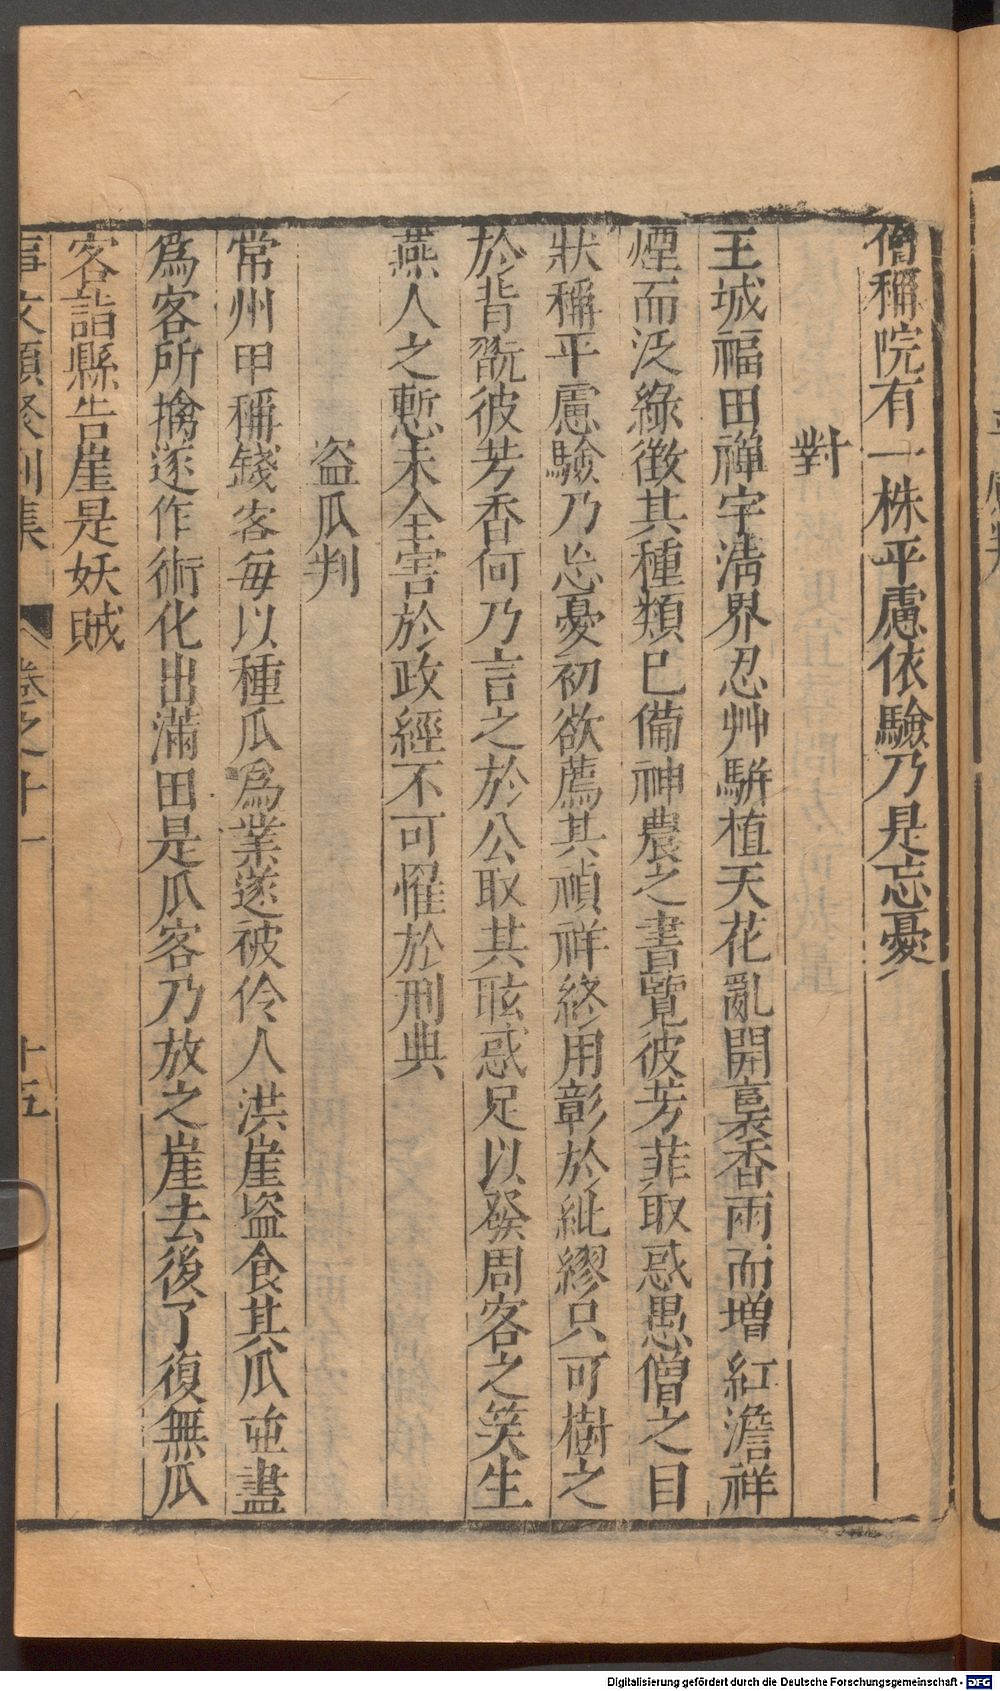 僧稱院有一株平慮依驗乃是忘憂
對
王城福田禪宇淸界忍艸駢植天花亂開裛香雨而增紅澹祥
煙而泛綠徵其種類已備神農之書覽彼芳菲取惑愚僧之目
狀稱平慮驗乃忘憂初欲薦其禎祥終用彰於紕繆只可樹之
於背翫彼芳香何乃言之於公取其眩惑足以發周客之笑生
燕人之慙未全害於政經不可懼於刑典
盜瓜判
常州甲稱錢客每以種瓜爲業遂被伶人洪崖盜食其瓜並盡
爲客所擒遂作術化出滿田是瓜客乃放之崖去後了復無瓜
客詣縣告崖是妖賊
事文類聚別集 卷之十一 十五
Digitalisierung gefördert durch die Deutsche Forschungsgemeinschaft - DFG